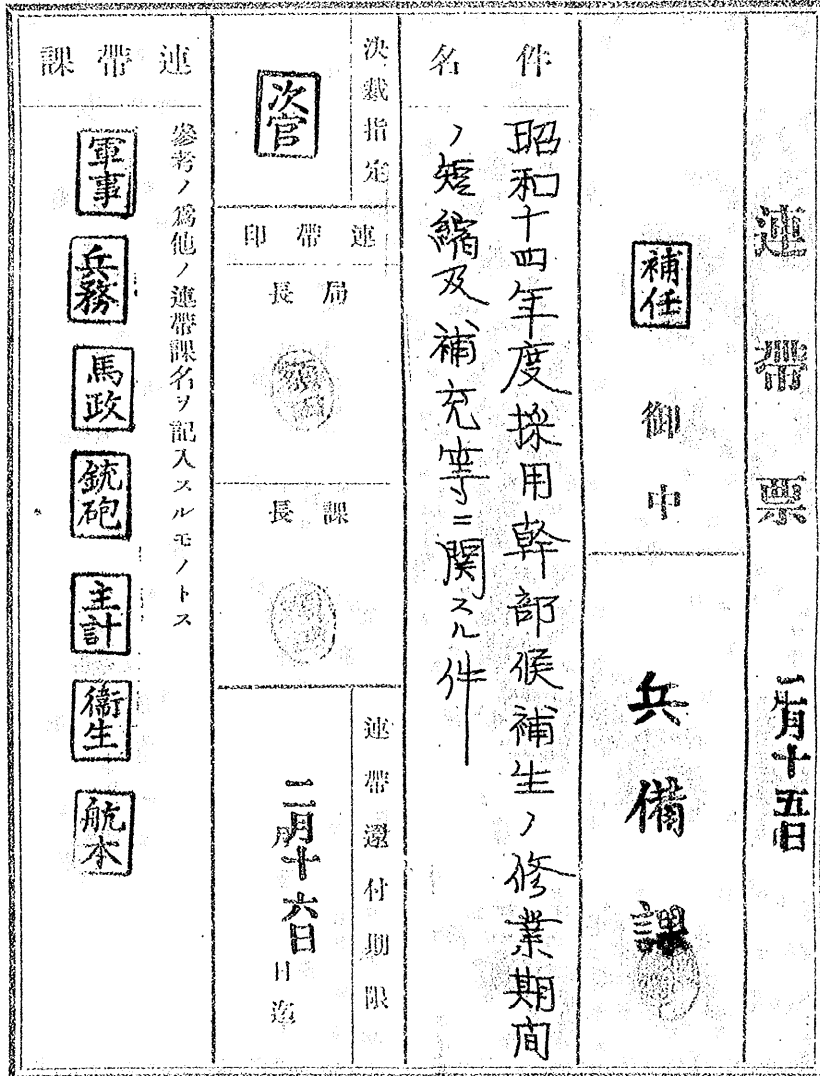 連帯票
二月十五日
補任 御中
兵備課
件名
昭和十四年度採用幹部候補生ノ修業期間
ノ短縮及補充等ニ関スル件
決裁指定
次官
連帯印
局長
課長
連帯還付期限
二月十六日
月 日迄
連帯課
參考ノ爲他ノ連帯課名ヲ記入スルモノトス
軍事
兵務
馬政
銃砲
主計
衞生
航本